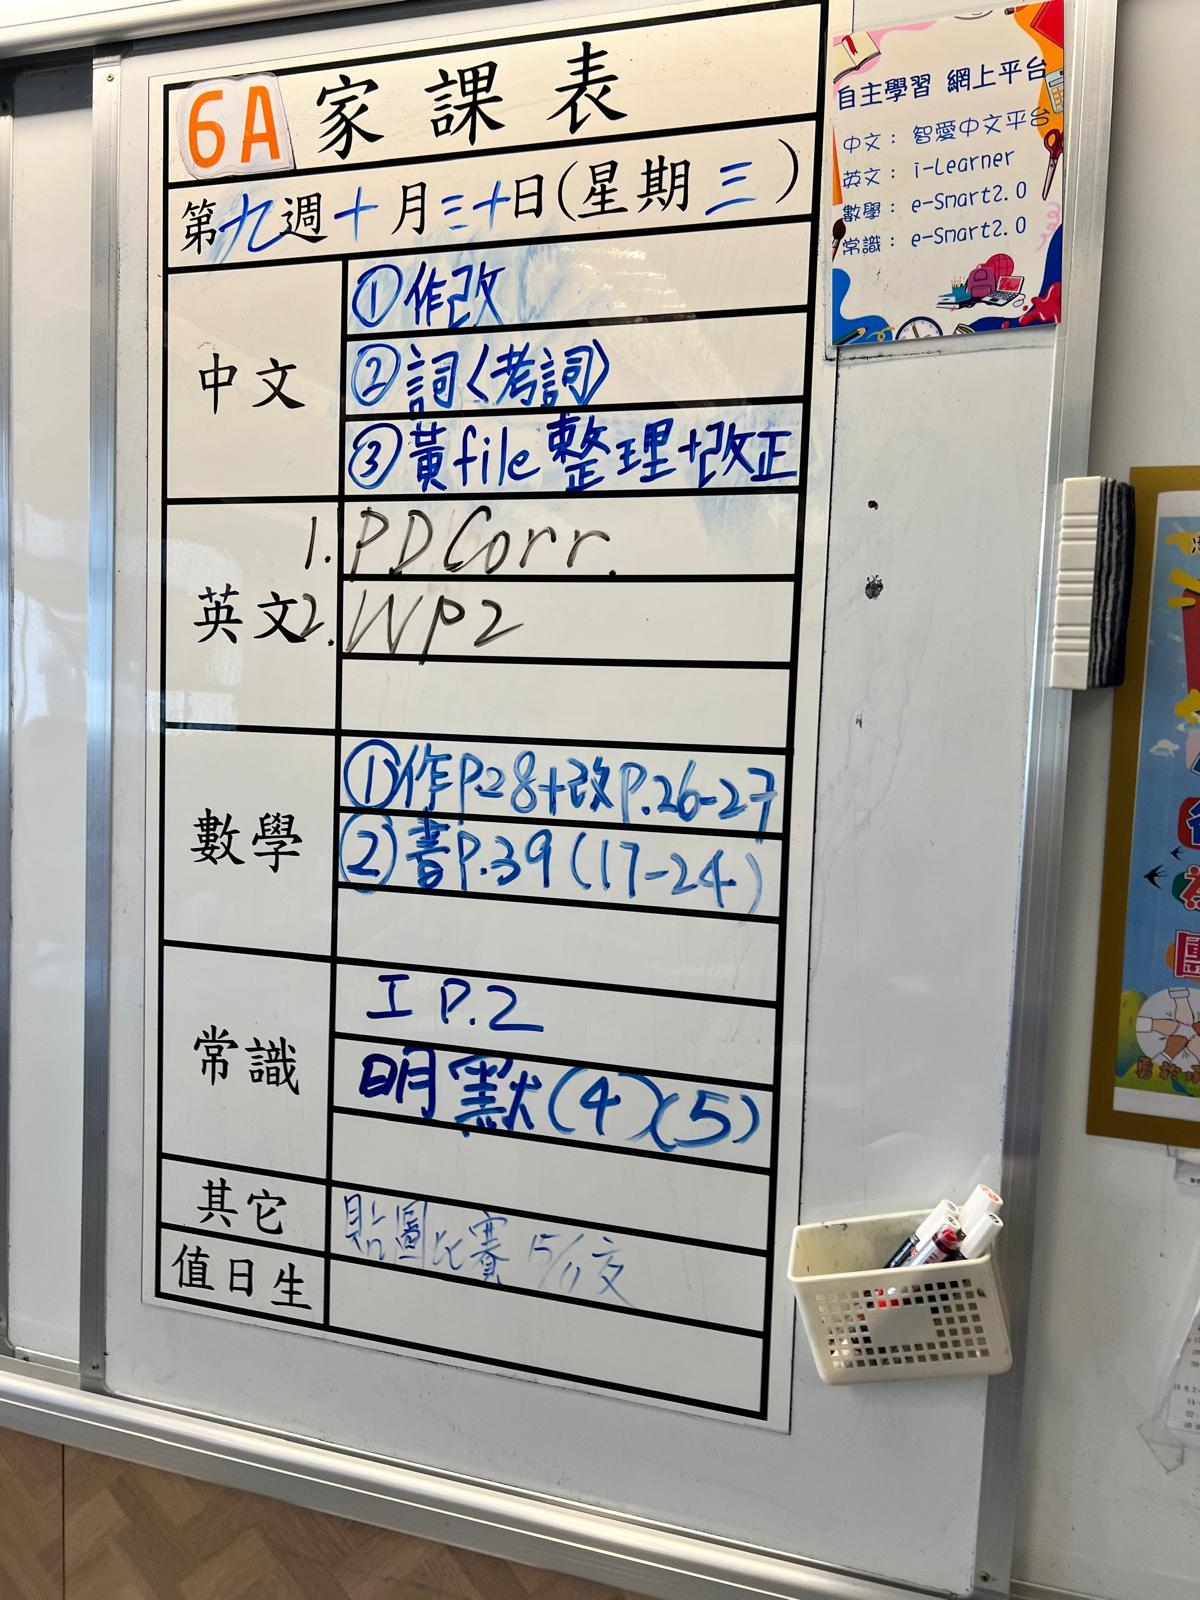 6A 家課表
第九週十月三十日(星期三)
中文
①作改
②詞〈考詞〉
③黃file整理+改正
英文
1. PD Corr.
2. WP2
數學
①作P.28+改P.26-27
②書P.39(17-24)
常識
工 P.2
明默(4)(5)
其它
貼圖比賽 15/11交
值日生
自主學習 網上平台
中文：智愛中文平台
英文：i-Learner
數學：e-Smart2.0
常識：e-Smart2.0